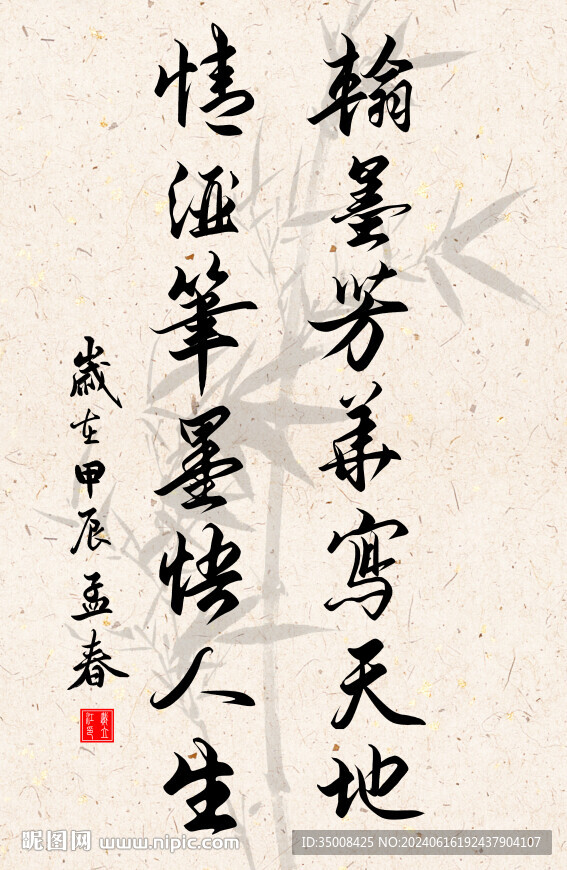 翰墨芳华寫天地
情涵筆墨快人生
歲在甲辰孟春
昵图网 www.nipic.com
ID:35008425 NO:20240616192437904107